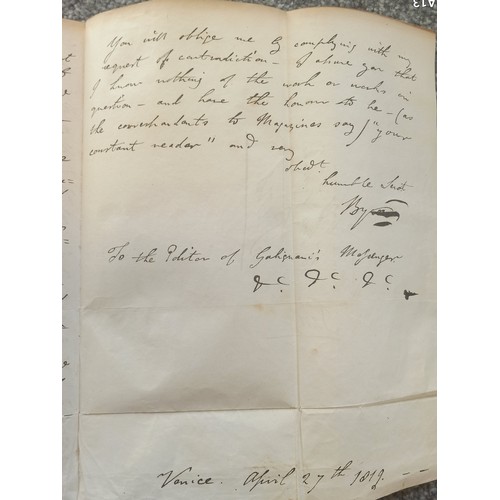 A13
You will oblige me by complying with my
request of contradiction – I assure you that
I know nothing of the work or works in
question – and have the honour to be – (as
the correspondents to Magazines say) "your
constant reader" and very
obedt
humble Servt
Byron
To the Editor of Galignani's Messenger
&c &c &c
Venice. April 27th 1819. – –